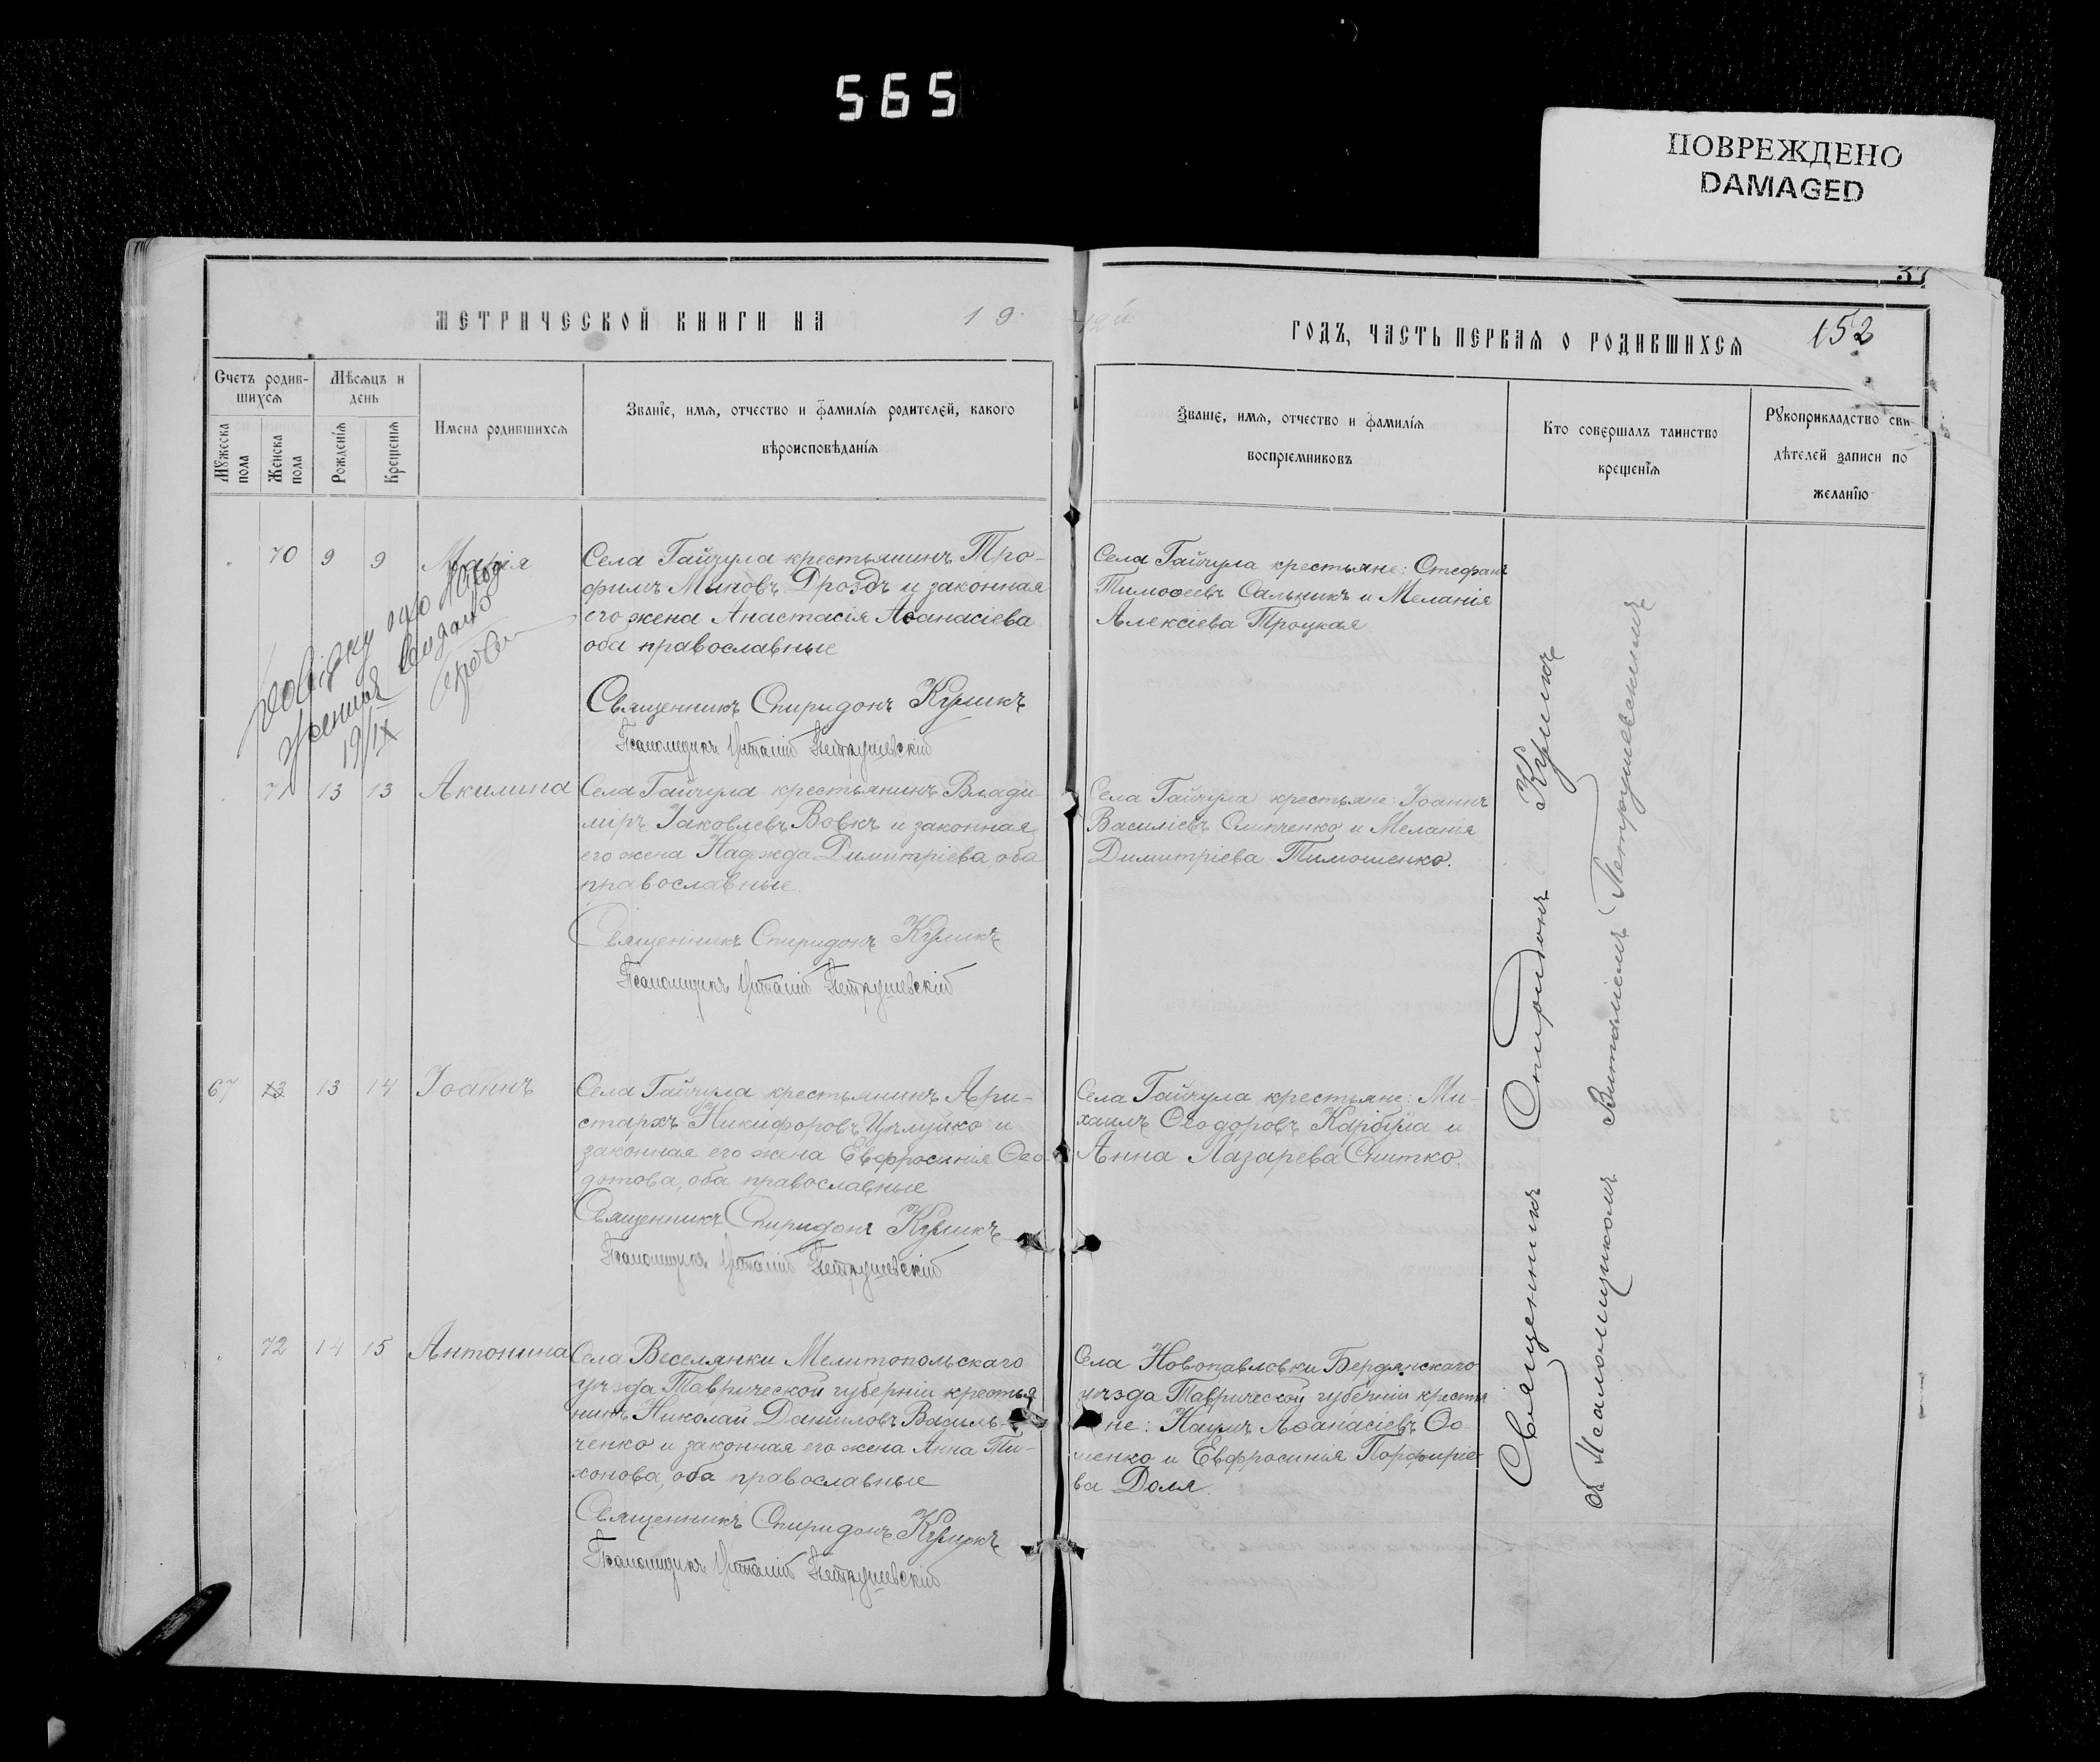 565
ПОВРЕЖДЕНО
DAMAGED
37
МЕТРИЧЕСКОЙ КНИГИ НА 19
ГОДЪ, ЧАСТЬ ПЕРВАЯ О РОДИВШИХСЯ
152
Счетъ родив-
шихся
Мѣсяцъ и
день
Мужеска
пола
Женска
пола
Рожденїя
Крещенїя
Имена родившихся
Званїе, имя, отчество и фамилїя родителей, какого
вѣроисповѣданїя
Званїе, имя, отчество и фамилїя
воспрїемниковъ
Кто совершалъ таинство
крещенїя
Рукоприкладство сви-
дѣтелей записи по
желанїю
70 9 9 Марія
Села Гайчула крестьянинъ Тро-
фимъ Миновъ Дроздъ и законная
его жена Анастасія Аѳанасіева
оба православные
Священникъ Спиридонъ Куликъ
Псаломщикъ Виталій Петрушевскій
Села Гайчула крестьяне: Стефанъ
Тимоѳеевъ Сальникъ и Меланія
Алексіева Троцкая
видано
19/IX
71 13 13 Акилина
Села Гайчула крестьянинъ Влади-
міръ Іаковлевъ Вовкъ и законная
его жена Надежда Димитріева, оба
православные.
Священникъ Спиридонъ Куликъ
Псаломщикъ Виталій Петрушевскій
Села Гайчула крестьяне: Іоаннъ
Василіевъ Слинченко и Меланія
Димитріева Тимошенко.
67 13 14 Іоаннъ
Села Гайчула крестьянинъ Ари-
стархъ Никифоровъ Цѣлуйко и
законная его жена Евфросинія Ѳео-
дотова, оба православные
Священникъ Спиридонъ Куликъ
Псаломщикъ Виталій Петрушевскій
Села Гайчула крестьяне: Ми-
хаилъ Ѳеодоровъ Карбула и
Анна Лазарева Снитко.
72 14 15 Антонина
Села Веселянки Мелитопольскаго
уѣзда Таврической губерніи крестья
нинъ Николай Данииловъ Василь-
ченко и законная его жена Анна Ти-
хонова, оба православные
Священникъ Спиридонъ Куликъ
Псаломщикъ Виталій Петрушевскій
Села Новопавловки Бердянскаго
уѣзда Таврической губерніи крестья
не: Наумъ Аѳанасіевъ Ѳо-
менко и Евфросинія Порфиріе-
ва Доля.
Священникъ Спиридонъ Куликъ
съ Псаломщикомъ Виталіемъ Петрушевскимъ